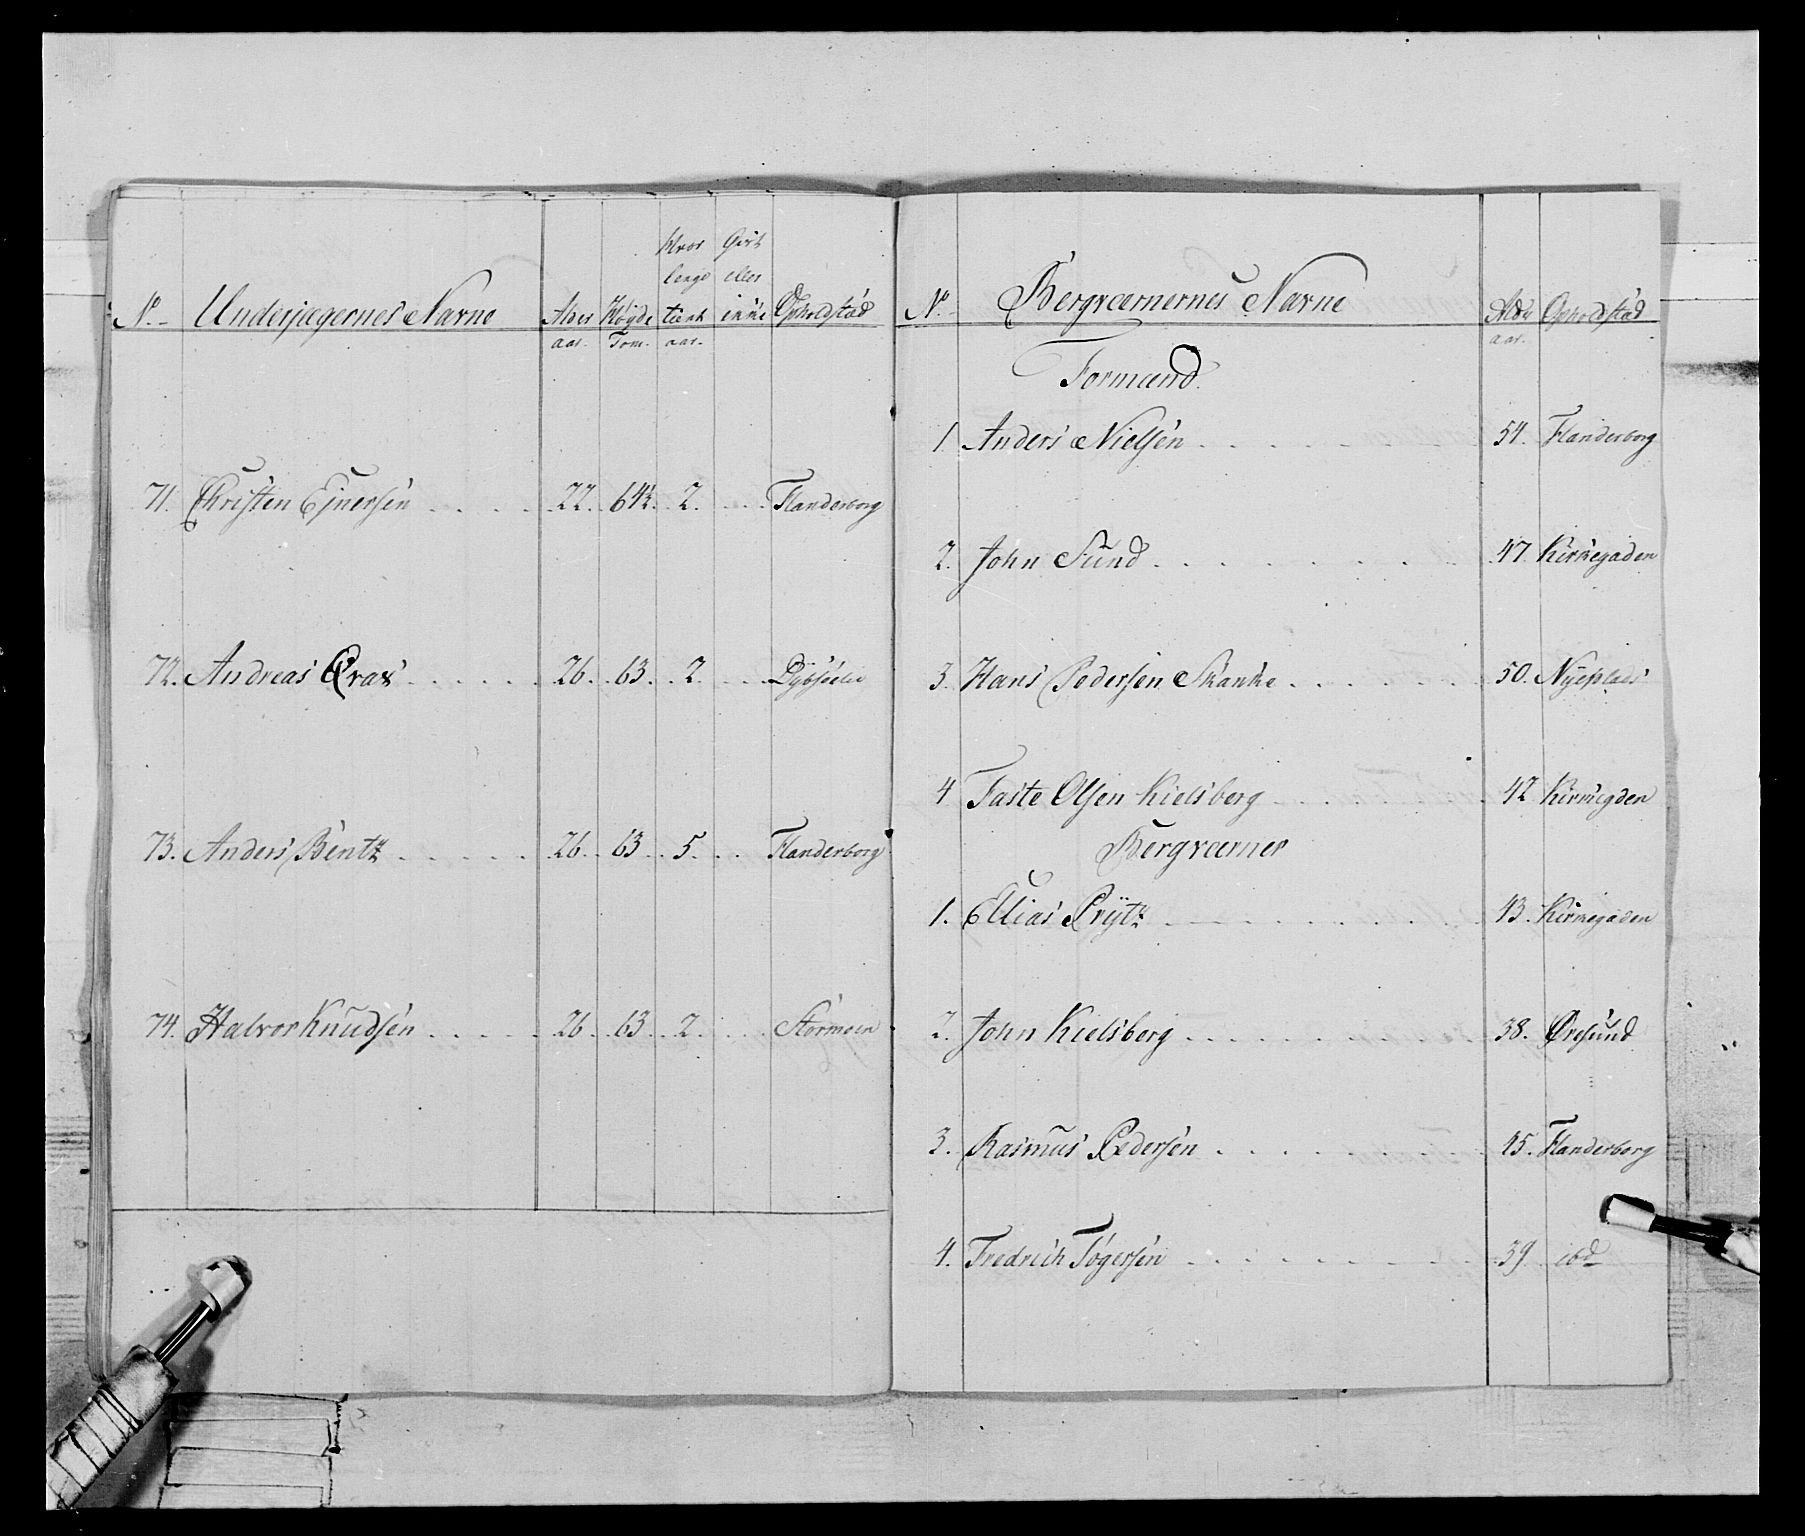 No. Underjægernes Navne Alder aar. Høyde Tom. Hvor lenge tient aar. Givt eller ikke Opholdstæd
71. Christen Ejnersen 22. 64½. 2. Flanderborg
72. Andreas Qvax 26. 63. 2.
73. Anders Bentz 26. 63. 5. Flanderborg
74. Halvor Knudsen 26. 63. 2. Stormoen
No. Bergværnernes Navne Alder aar. Opholdstæd
Formænd.
1 Anders Nielsen 54. Flanderborg
2. John Sund 47. Kirkegaden
3. Hans Pedersen Skanke 50. Nyeplads
4 Faste Olsen Kielsberg 42 Kirkegden
Bergværner
1. Elias Prytz 43. Kirkegaden
2. John Kielsberg 38. Øresund
3. Rasmus Pedersen 45. Flanderborg
4. Fredrich Tøgersen 39. ibd